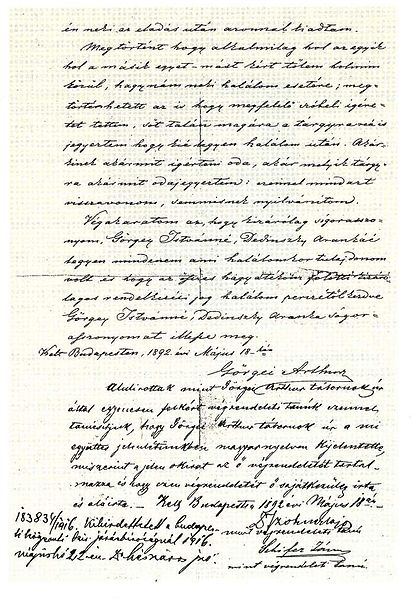 én neki az eladás után azonnal kiadtam.
Megtörtént hogy alkalmilag hol az egyik
hol a másik egyet-mást kért tőlem holmim
közül, hagynám neki halálom esetére; meg-
történhetett az is hogy megfelelő szóbeli igére-
tet tettem, sőt talán magára a tárgyra rá is
jegyeztem hogy kié legyen halálom után. Akár-
kinek akármit igértem oda, akármelyik tárgy-
ra akármit odajegyeztem: ezennel mindazt
visszavonom, semmisnek nyilvánítom.
Végakaratom az, hogy kizárólag sógorasszo-
nyom, Görgey Istvánné, Dedinszky Aranka é
legyen mindenem ami halálomkor tulajdonom
volt és hogy az egész hagyaték fölötti kizáró-
lagos rendelkezési jog halálom perczétől kezdve
Görgey Istvánné, Dedinszky Aranka sógor-
asszonyomat illesse meg.
Kelt Budapesten, 1892 évi Május 18-án
Görgei Arthur
Alulirottak mint Görgei Arthur tábornok úr
által egyenesen felkért végrendeleti tanúk ezennel
tanúsítjuk, hogy Görgei Arthur tábornok úr a mi
együttes jelenlétünkben magyar nyelven kijelentette,
miszerint a jelen okirat az ő végrendeletét tartal-
mazza és hogy ezen végrendeletet ő sajátkezűleg írta
és aláírta. – Kelt Budapesten 1892 évi Május 18án
mint végrendeleti tanú
mint végrendeleti tanú.
1916. Kihirdettetett a budapes-
ti kir. járásbíróságnál 1916.
22-én. Dr